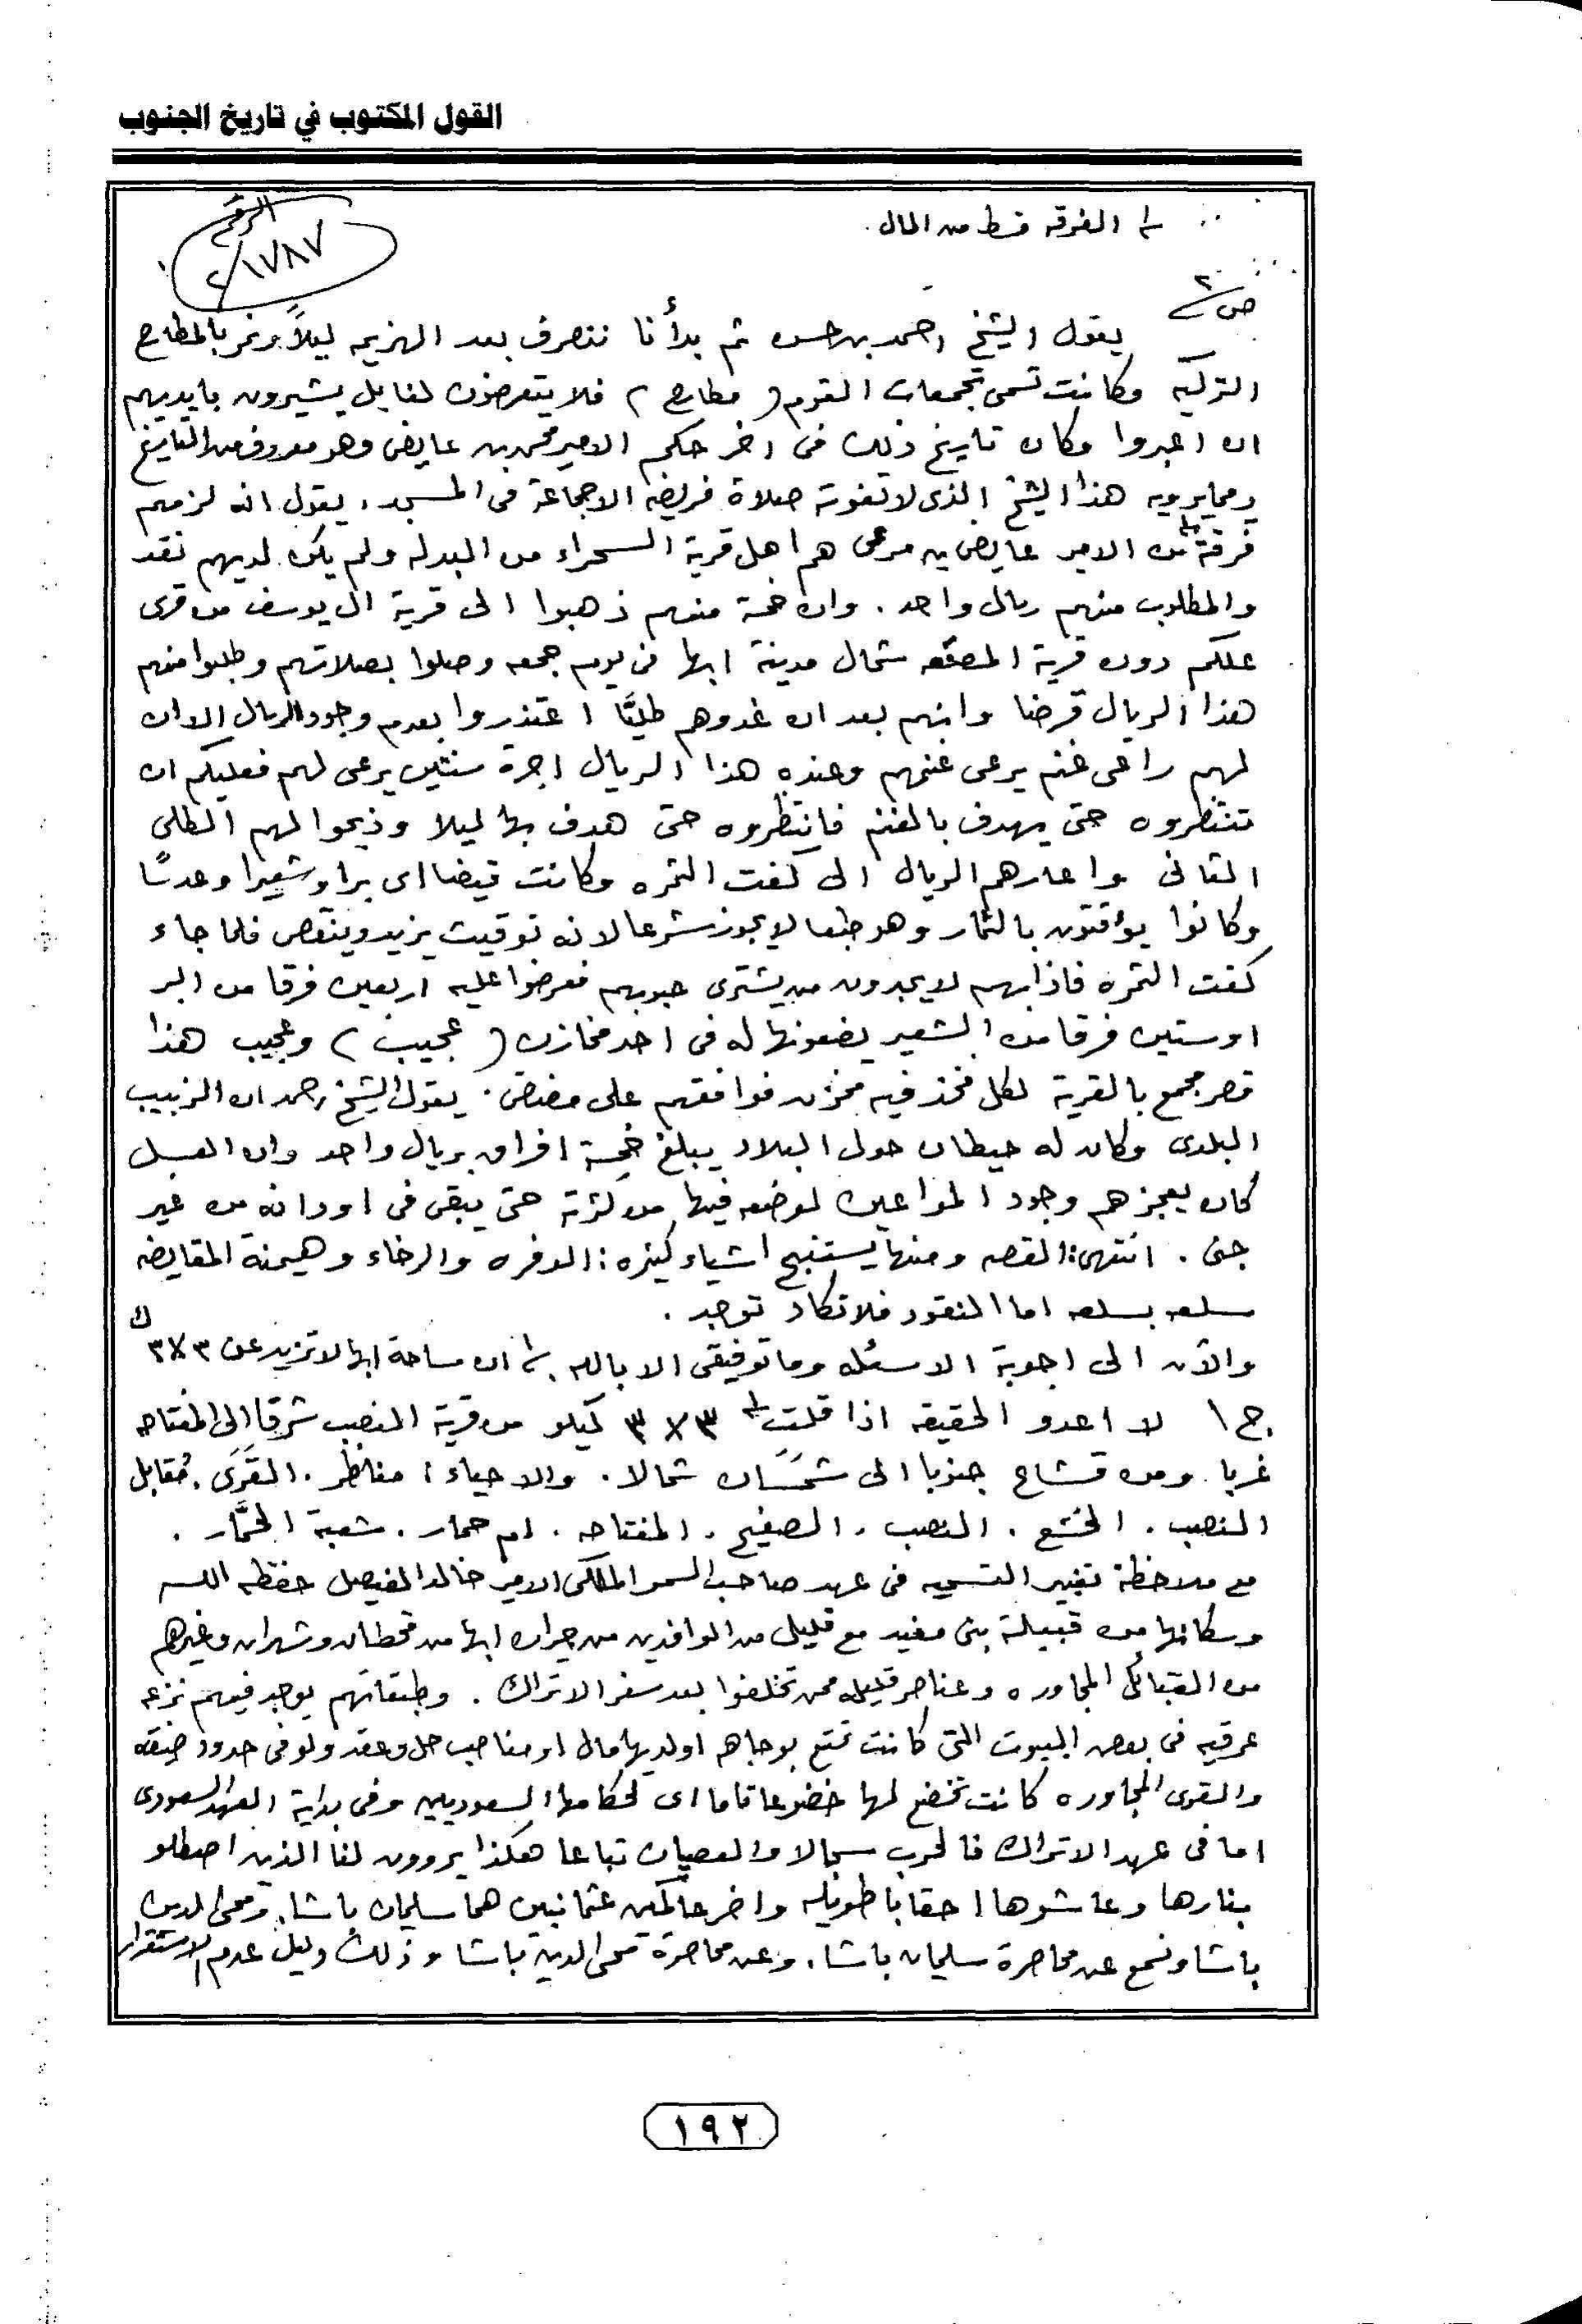 القول المكتوب في تاريخ الجنوب
١/ الفرقه قسط من المال .
الرقم
٢/١٧٨٧
ص ٢
يقول الشيخ احمد بن حسن ثم بدأنا ننصرف بعد الهزيمه ليلاً ونمر بالمطارح
التركيه وكانت تسمى تجمعات القوم ( مطارح ) فلا يتعرضون لنا بل يشيرون بايديهم
ان اعبروا وكان تاريخ ذلك في اخر حكم الامير محمد بن عايض وهو معروف من التاريخ
ومما يرويه هذا الشيخ الذى لا تفوته صلاة فريضه الا جماعة فى المسجد ، يقول انه لزمهم
فرقة١/ من الامير عايض بن مرعى هم اهل قرية السحراء من البدله ولم يكن لديهم نقد
والمطلوب منهم ريال واحد . وان خمسة منهم ذهبوا الى قرية ال يوسف من قرى
علكم دون قرية المصقعه شمال مدينة ابها فى يوم جمعه وصلوا بصلاتهم وطلبوا منهم
هذا الريال قرضا وانهم بعد ان غدوهم طليًّا اعتذروا بعدم وجود الريال الا ان
لهم راعى غنم يرعى غنمهم وعنده هذا الريال اجرة سنتين يرعى لهم فعليكم ان
تنتظروه حتى يهدف بالغنم فانتظروه حتى هدف بها ليلا وذبحوا لهم الطلى
الثانى واعارهم الريال الى كفت الثمره وكانت قيضا اى برا وشعيرا وعدسًا
وكانوا يؤقتون بالثمار وهو طبعا لا يجوز شرعا لانه توقيت يزيد وينقص فلما جاء
كفت الثمره فاذا بهم لا يجدون من يشترى حبوبهم فعرضوا عليه اربعين فرقا من البر
او ستين فرقا من الشعير يضعونها له فى احد مخازن ( عجيب ) وعجيب هذا
قصر مجمع بالقرية لكل فخذ فيه مخزن فوافقهم على مضض . يقول الشيخ احمد ان الزبيب
البلدى وكان له حيطان حول البلاد يبلغ خمسة افراق بريال واحد وان العسل
كان يعجزهم وجود المواعين لوضعه فيها من كثرته حتى يبقى فى اودانه من غير
جنى . انتهى القصه ومنها يستنبح اشياء كثيره : الوفره والرخاء وهيمنة المقايضه
سلعه بسلعه اما النقود فلا تكاد توجد .
والآن الى اجوبة الاسئله وما توفيقى الا بالله ١/ ان مساحة ابها لا تزيد عن ٣×٣ ك
ج ١ لا اعدو الحقيقه اذا قلت ١/ ٣×٣ كيلو من قرية المنصب شرقا الى المفتاحه
غربا . ومن قشاح جنوبا الى شمسان شمالا . والاحياء : مناظر . القَرَى . مقابل
النصب . الخشع . النصب . الصفيح . المفتاحه . ام حمار . شعبة الحمَّار .
مع ملاحظة تغيير التسميه فى عهد صاحب السمو الملكى الامير خالد الفيصل حفظه الله
وسكانها من قبيلة بنى مغيد مع قليل من الوافدين من جيران ابها من قحطان وشهران وغيرهم
من القبائل المجاوره وعناصر قليله ممن تخلفوا بعد سفر الاتراك . وطبقاتهم يوجد فيهم نزعه
عرقيه فى بعض البيوت التى كانت تتمتع بوجاهه او لديها مال او مناصب حل وعقد ولو فى حدود ضيقه
والقرى المجاوره كانت تخضع لها خضوعا تاما اى لحكامها السعوديين وفى بداية العهد السعودى
اما فى عهد الاتراك فالحرب سجالا والعصيان تباعا هكذا يروون لنا الذين اصطلو
بنارها وعاشوها احقابا طويله واخر حاكمين عثمانيين هما سليمان باشا . ومحى الدين
باشا ونسمع عن محاصرة سليمان باشا . وعن محاصرة محى الدين باشا وذلك دليل عدم الاستقرار
١٩٢